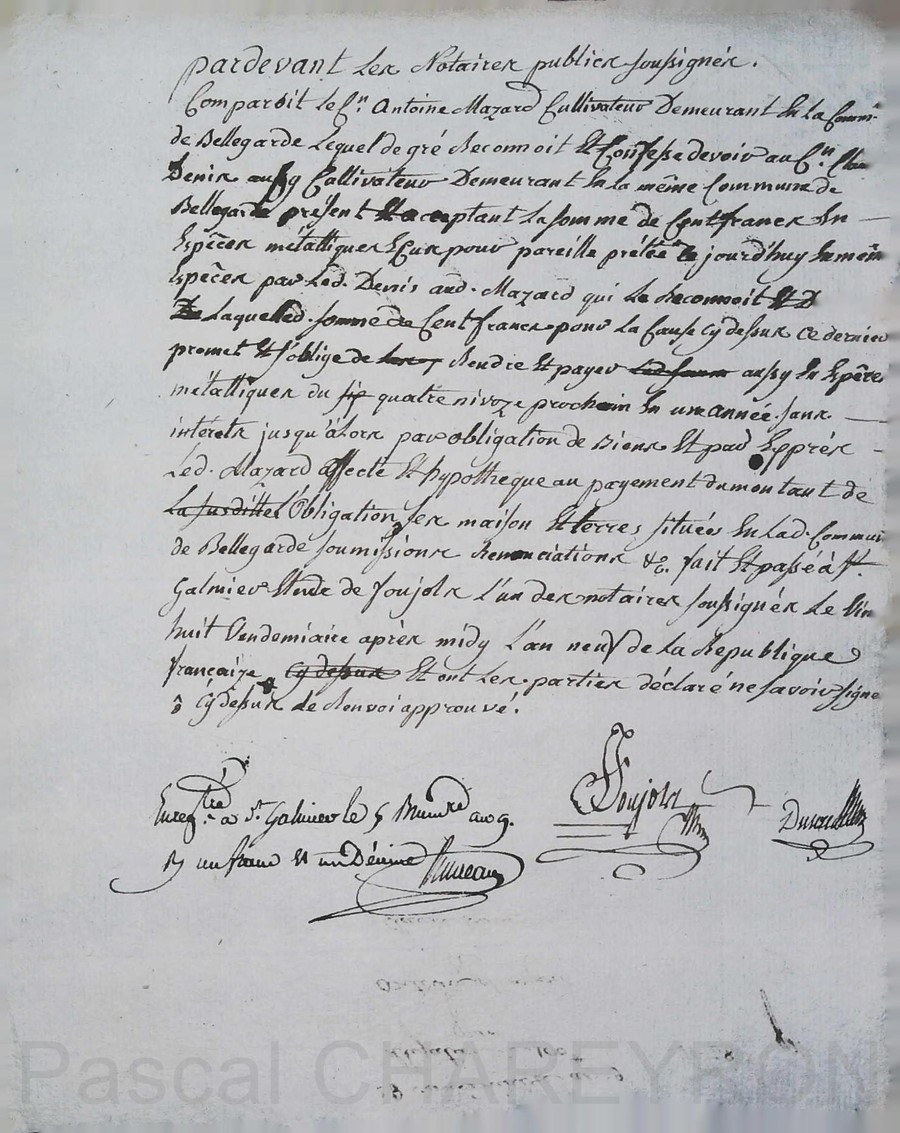 pardevant Les Notaires publics soussignés.
Comparoit le C.n Antoine Mazard Cultivateur Demeurant En La Comm.
de Bellegarde Lequel de gré Reconnoit Et Confesse devoir au C.n
Denis aussy Cultivateur Demeurant En la même Commune de
Bellegarde présent Et aceptant La somme de Cent francs En
Espèces métalliques Ecus pour pareille prétéé ce jourd'huy En mêm
Espèces par Led. Denis aud. Mazard qui Le Reconnoit Et D
De Laquelled. somme de Cent francs pour La Cause Cy dessus Ce dernier
promet Et s'oblige de Rendre Et payer Lad somm aussy En Espèces
métalliques du six quatre nivoze prochain En une année sans
intérets jusqu'álors par obligation de Biens Et par Epprés
Led. Mazard affecte Et hypotheque au payement du montant de
La susditte L'Obligation ses maison Et terres situées En Lad. Commu
de Bellegarde soumissions Renonciations &c. fait Et passé à St.
Galmier Etude de Joujols L'un des notaires soussignés Le Vin
huit Vendemiaire après midy L'an neuf de La Republique
françaire Cy dessus Et ont Les parties déclaré ne savoir signe
Cy dessus de Renvoi approuvé.
Enreg.tré a St. Galmier le 5 Brum.re an 9.
R un franc et un Décime
Joujols
Pascal CHAREYRON